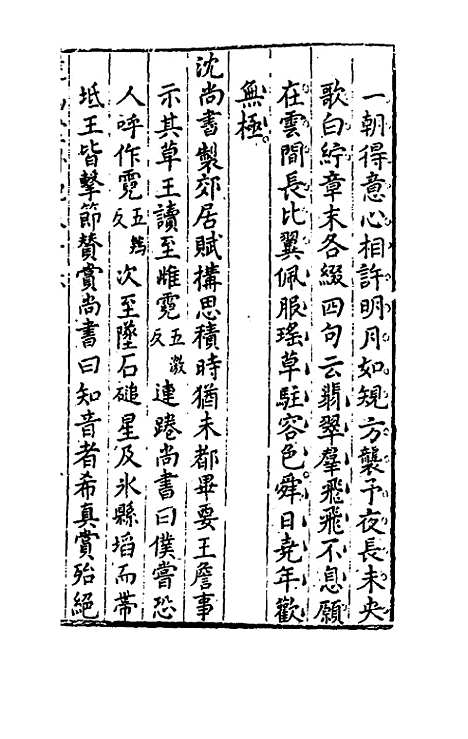 一朝得意心相許明月如規方襲予夜長未央
歌白紵章末各綴四句云翡翠羣飛飛不息願
在雲間長比翼佩服瑤草駐容色舜日堯年歡
無極
沈尚書製郊居賦構思積時猶未都畢要王詹事
示其草王讀至雌霓五激反連踡尚書曰僕嘗恐
人呼作霓五雞反次至墜石磓星及氷縣坮而帶
坻王皆擊節贊賞尚書曰知音者希真賞殆絕